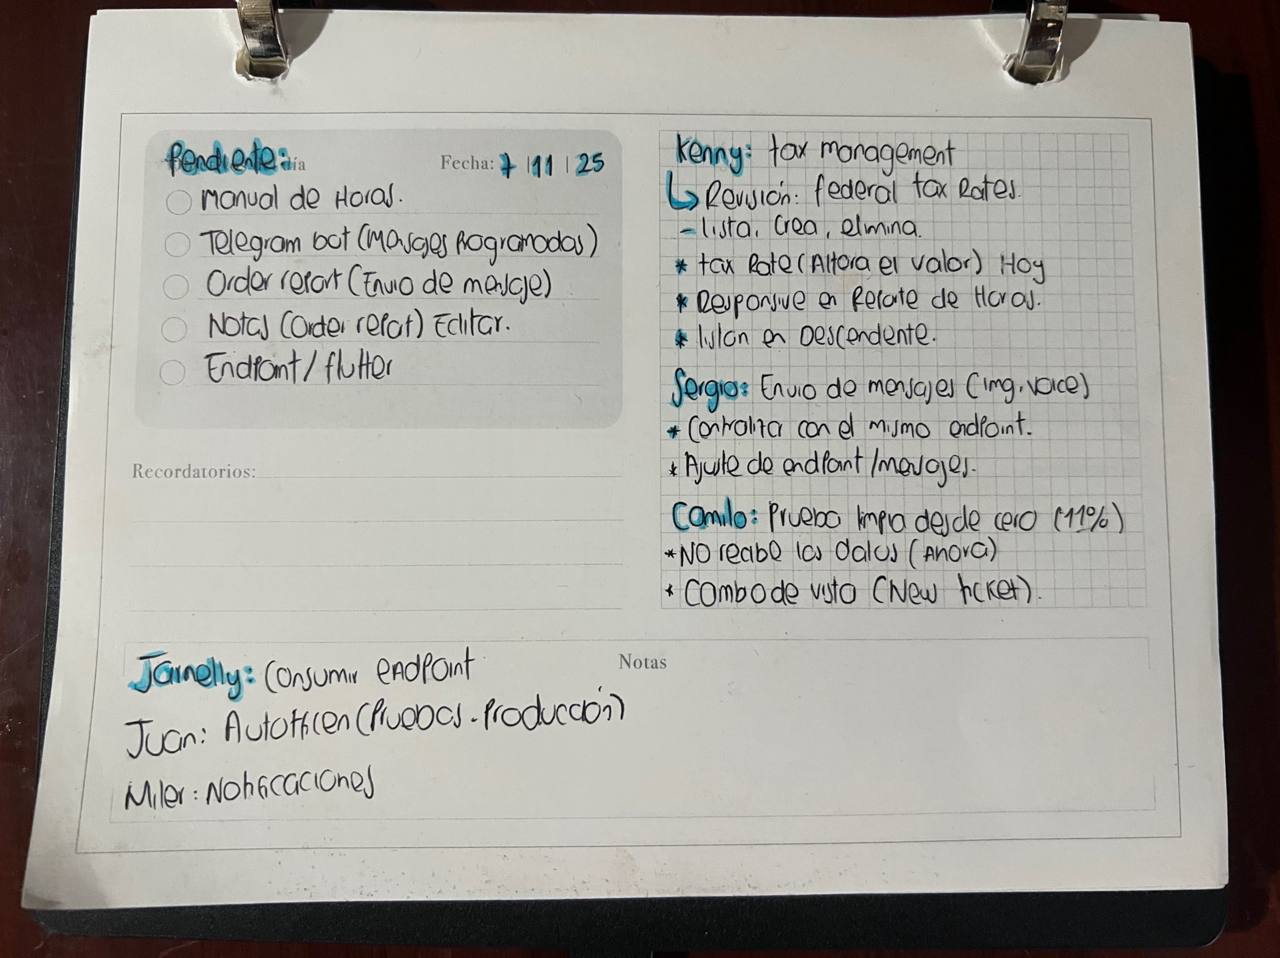 Pendiente:
Fecha: 7 | 11 | 25
Manual de Horas.
Telegram bot (Mensajes Programados)
Order report (Envio de mensaje)
Notas (Order report) Editar.
Endpoint / flutter
Recordatorios:
Kenny: tax management
Revisión: federal tax Rates.
- lista, crea, elimina.
* tax Rate (Altera el valor) Hoy
* Responsive en Reporte de Horas.
* listan en Descendente.
Sergio: Envio de mensajes (img, voice)
* Controlita con el mismo endpoint.
* Ajuste de endpoint / mensajes.
Camilo: Prueba limpia desde cero (11%)
* NO recibe los datos (Ahora)
* Combo de visto (New ticket).
Notas
Jarnelly: Consumir endpoint
Juan: (Pruebas - Producción)
Miler: Notificaciones